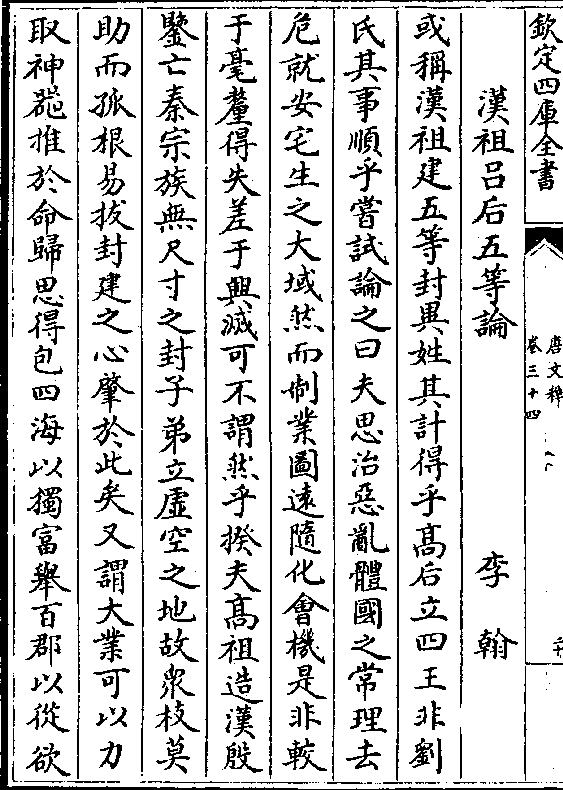 欽定四庫全書
唐文粹
卷三十四
漢祖呂后五等論 李翰
或稱漢祖建五等封異姓其計得乎髙后立四王非劉
氏其事順乎嘗試論之曰夫思治惡亂體國之常理去
危就安宅生之大域然而制業圖遠隨化會機是非較
于毫釐得失差于興滅可不謂然乎揆夫髙祖造漢殷
鑒亡秦宗族無尺寸之封子弟立虛空之地故衆枝莫
助而孤根易拔封建之心肇於此矣又謂大業可以力
取神器推於命歸思得包四海以獨富舉百郡以從欲